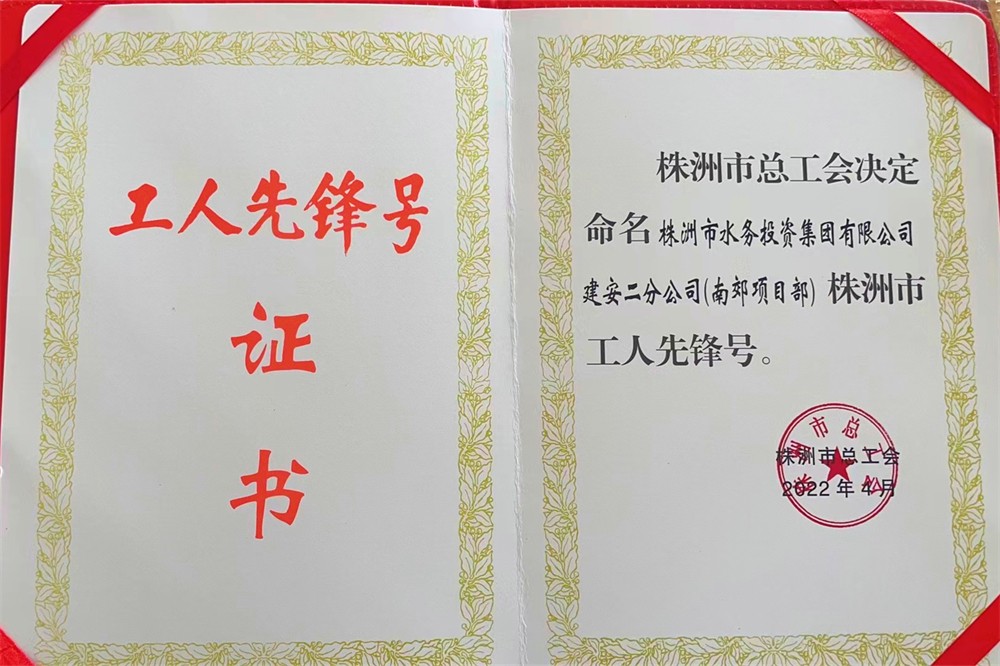 工人先锋号
证
书
株洲市总工会决定
命名株洲市水务投资集团有限公司
建安二分公司(南郊项目部)株洲市
工人先锋号。
株洲市总工会
株洲市总工会
2022年4月